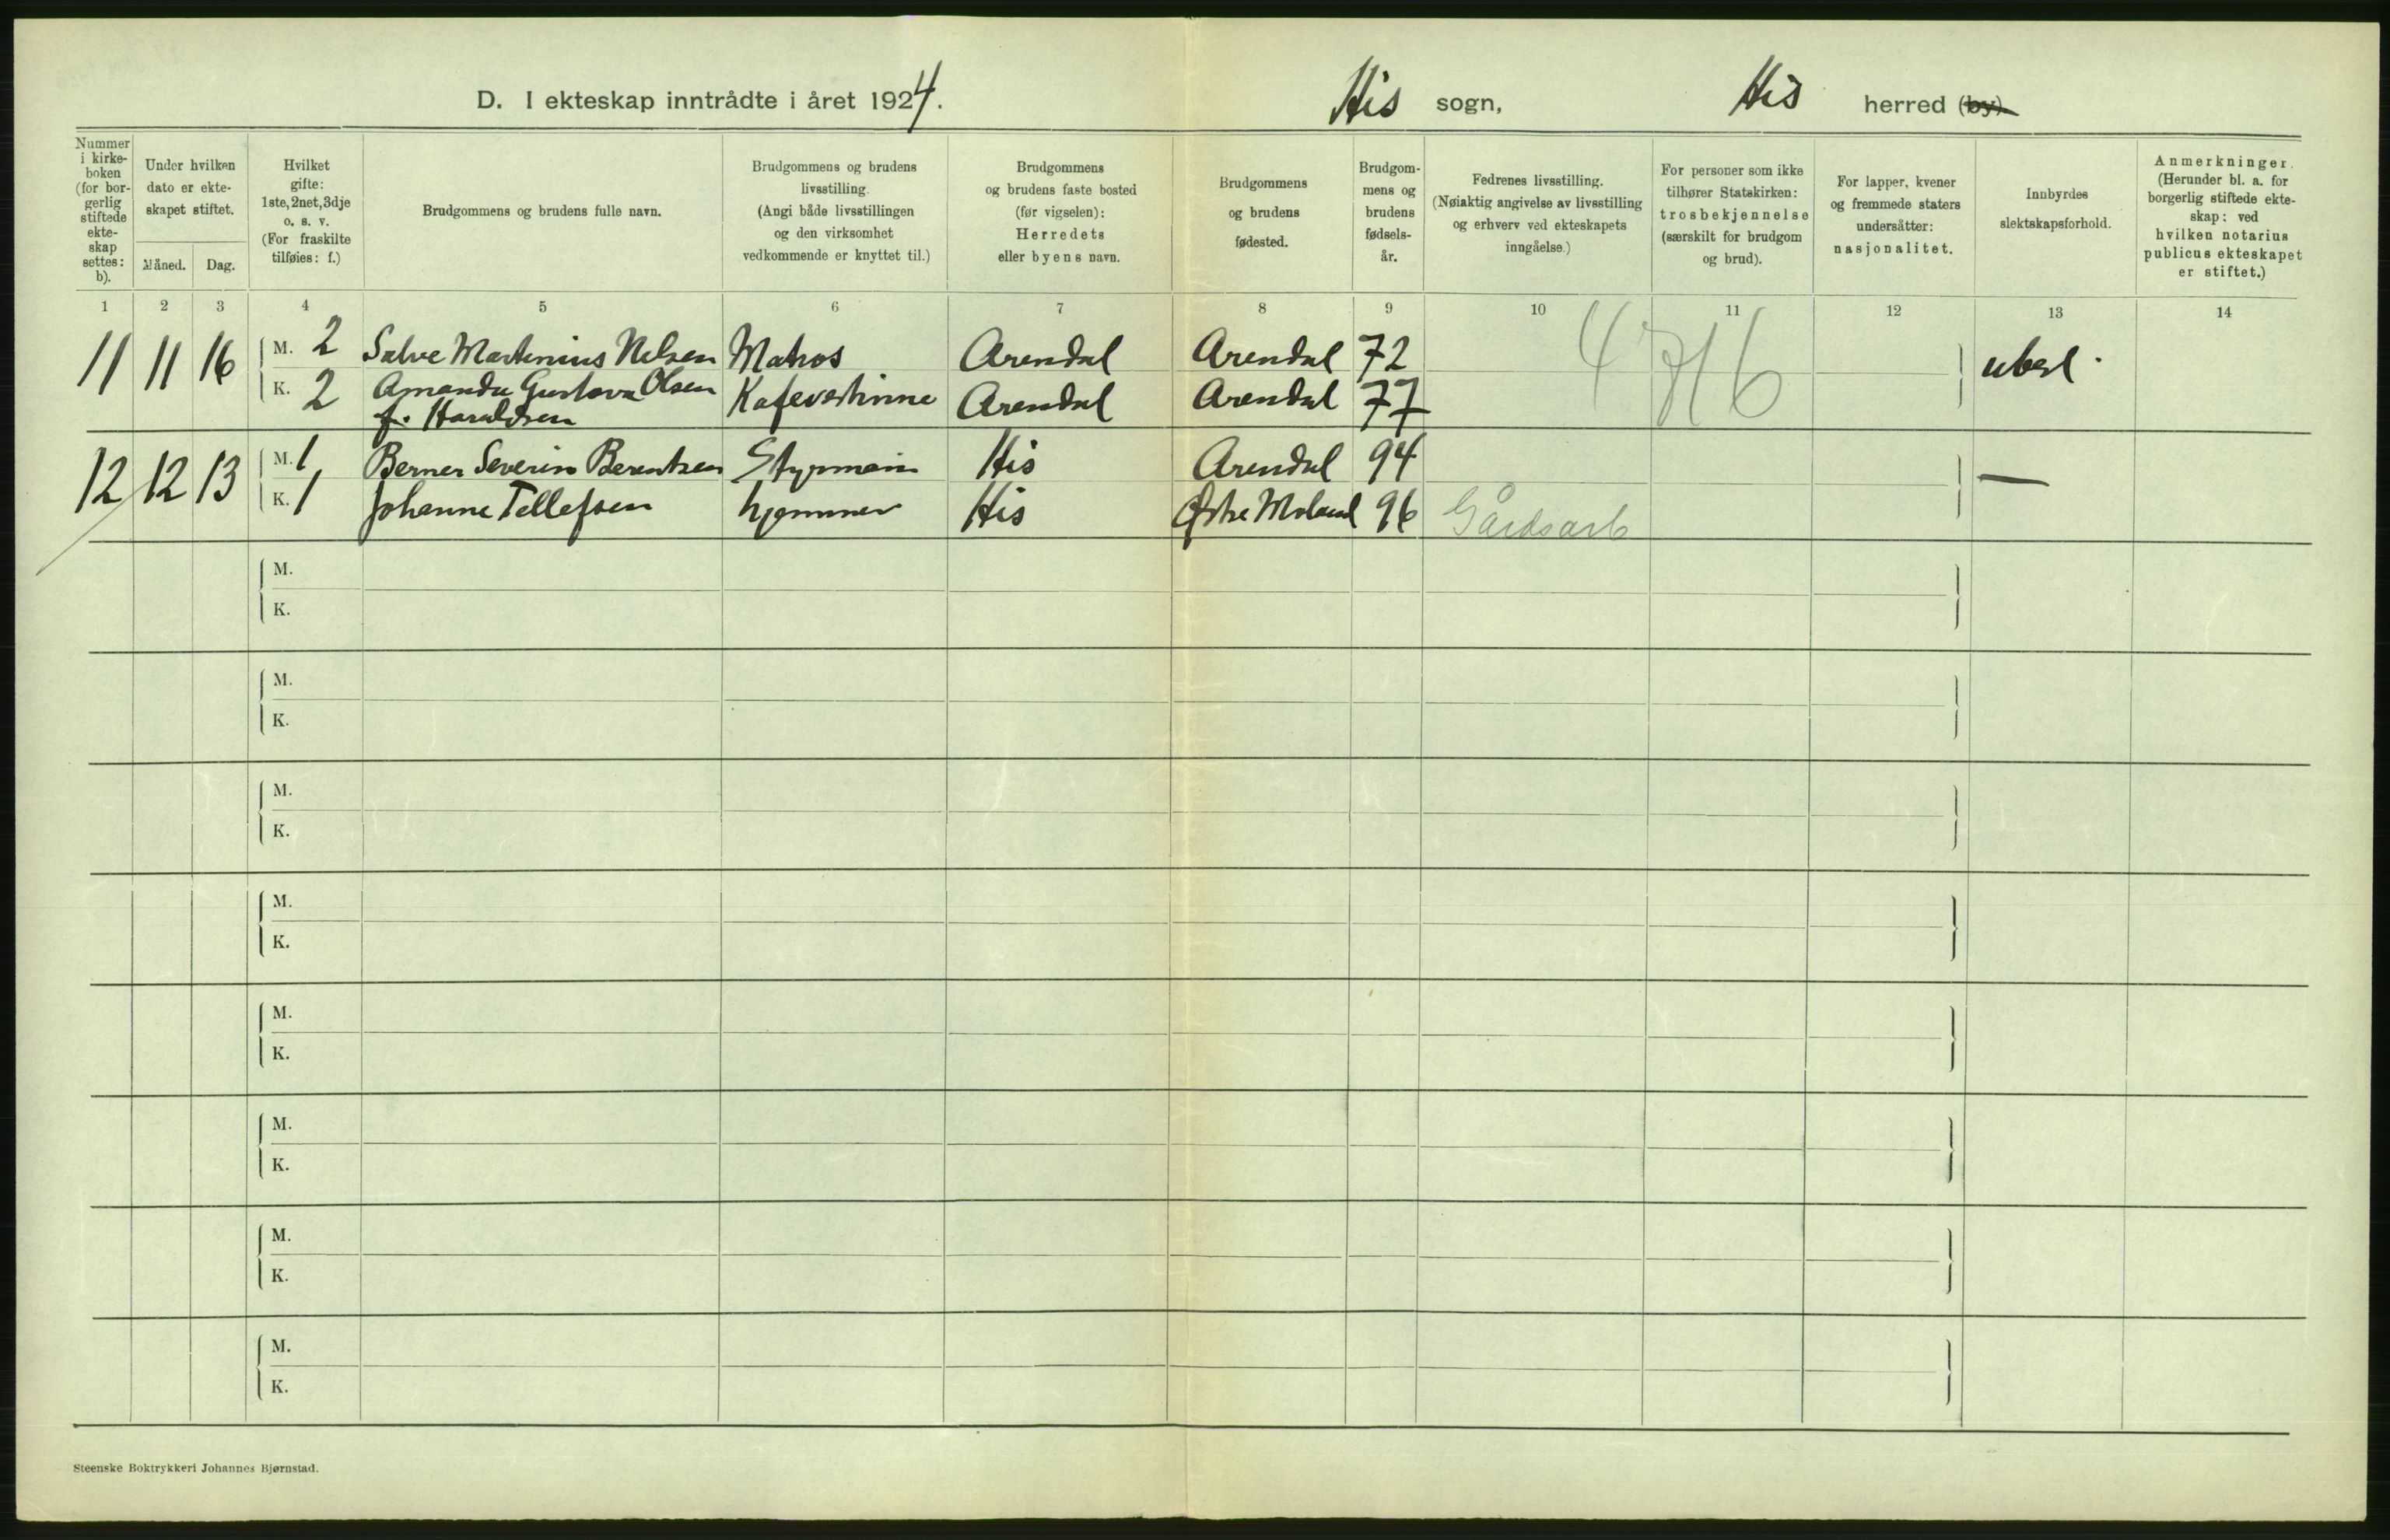 D. I ekteskap inntrådte i året 1924. His sogn, His herred (by).
Nummer i kirkeboken (for borgerlig stiftede ekteskap settes: b).
Under hvilken dato er ekteskapet stiftet.
Måned. Dag.
Hvilket gifte: 1ste, 2net, 3dje o. s. v. (For fraskilte tilføies: f.)
Brudgommens og brudens fulle navn.
Brudgommens og brudens livsstilling. (Angi både livsstillingen og den virksomhet vedkommende er knyttet til.)
Brudgommens og brudens faste bosted (før vigselen): Herredets eller byens navn.
Brudgommens og brudens fødested.
Brudgommens og brudens fødselsår.
Fedrenes livsstilling. (Nøiaktig angivelse av livsstilling og erhverv ved ekteskapets inngåelse.)
For personer som ikke tilhører Statskirken: trosbekjennelse (særskilt for brudgom og brud).
For lapper, kvener og fremmede staters undersåtter: nasjonalitet.
Innbyrdes slektskapsforhold.
Anmerkninger. (Herunder bl. a. for borgerlig stiftede ekteskap: ved hvilken notarius publicus ekteskapet er stiftet.)
1 2 3 4 5 6 7 8 9 10 11 12 13 14
11 11 16 M. 2 Salve Martinius Nilsen Matros Arendal Arendal 72 ubesl.
K. 2 Amanda Gustava Olsen Kafevertinne Arendal Arendal 77
f. Haraldsen
4716
12 12 13 M. 1 Berner Severin Berentsen Styrmann His Arendal 94 —
K. 1 Johanne Tellefsen hjemmev His Østre Moland 96 Gårdsarb
M.
K.
M.
K.
M.
K.
M.
K.
M.
K.
M.
K.
M.
K.
M.
K.
Steenske Boktrykkeri Johannes Bjørnstad.